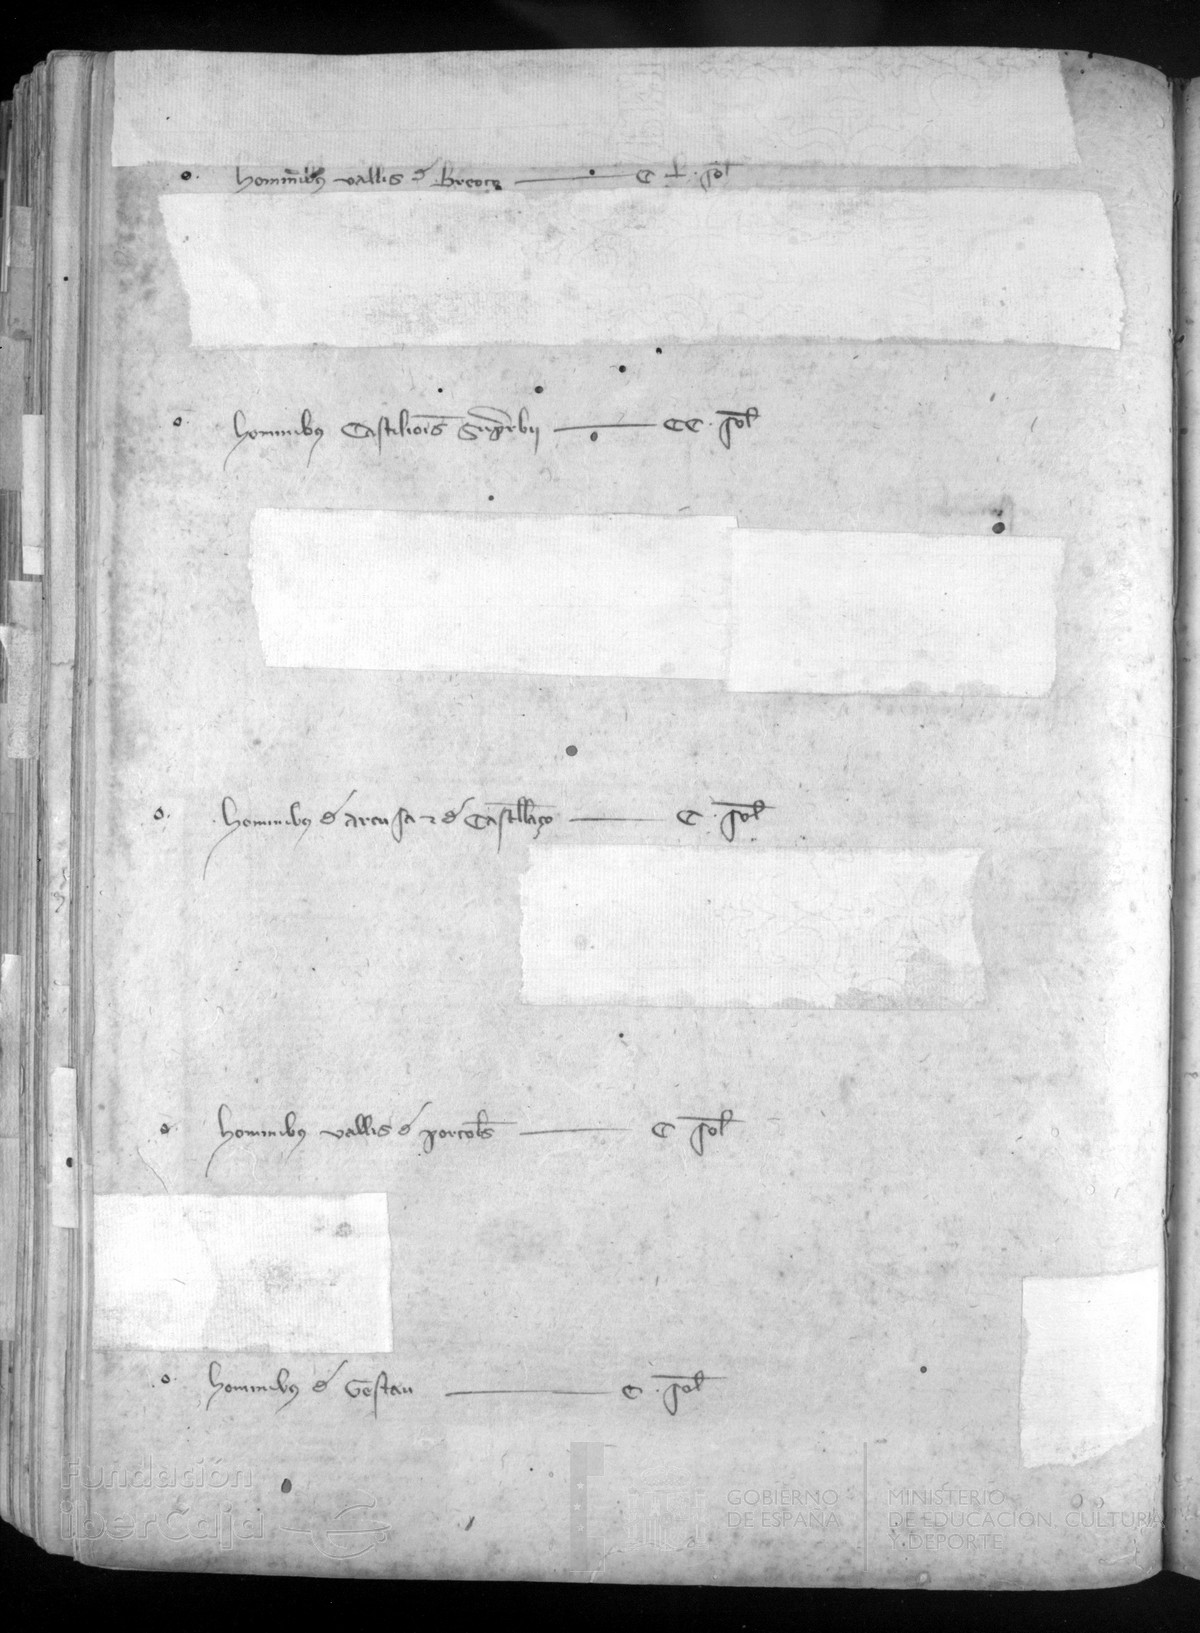 o. hominibus vallis de Broto C L sol
o. hominibus Castilionis Superbii CC sol
o. hominibus de arcusa et de Castellaço C sol
o. hominibus vallis de porcols C sol
o. hominibus de Gestau C sol
Fundación
iberCaja
GOBIERNO
DE ESPAÑA
MINISTERIO
DE EDUCACIÓN, CULTURA
Y DEPORTE